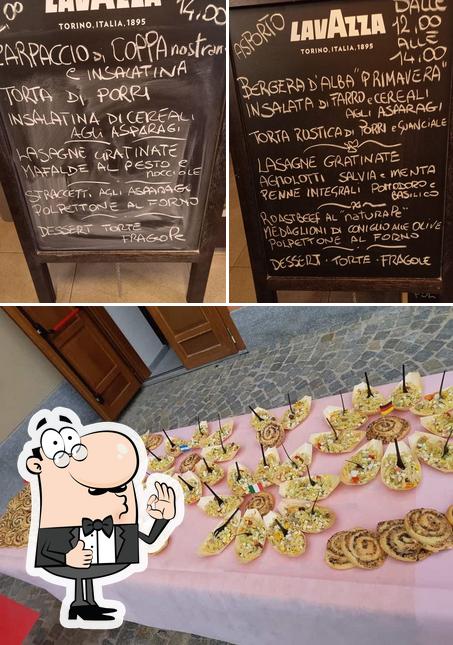 14,00
LAVAZZA
TORINO, ITALIA, 1895
CARPACCIO DI COPPA nostran
E INSALATINA
TORTA DI PORRI
INSALATINA DI CEREALI
AGLI ASPARAGI
LASAGNE GRATINATE
MAFALDE AL PESTO E
NOCCIOLE
STRACCETTI AGLI ASPARAGI
POLPETTONE AL FORNO
DESSERT TORTE
FRAGOLE
ASPORTO
LAVAZZA
TORINO, ITALIA, 1895
DALLE
12,00
ALLE
14,00
BERGERA D'ALBA "PRIMAVERA"
INSALATA DI FARRO E CEREALI
AGLI ASPARAGI
TORTA RUSTICA DI PORRI E GUANCIALE
LASAGNE GRATINATE
AGNOLOTTI SALVIA E MENTA
PENNE INTEGRALI POMODORO E
BASILICO
ROASTBEEF AL "NATURALE"
MEDAGLIONI DI CONIGLIO ALLE OLIVE
POLPETTONE AL FORNO
DESSERT · TORTE · FRAGOLE